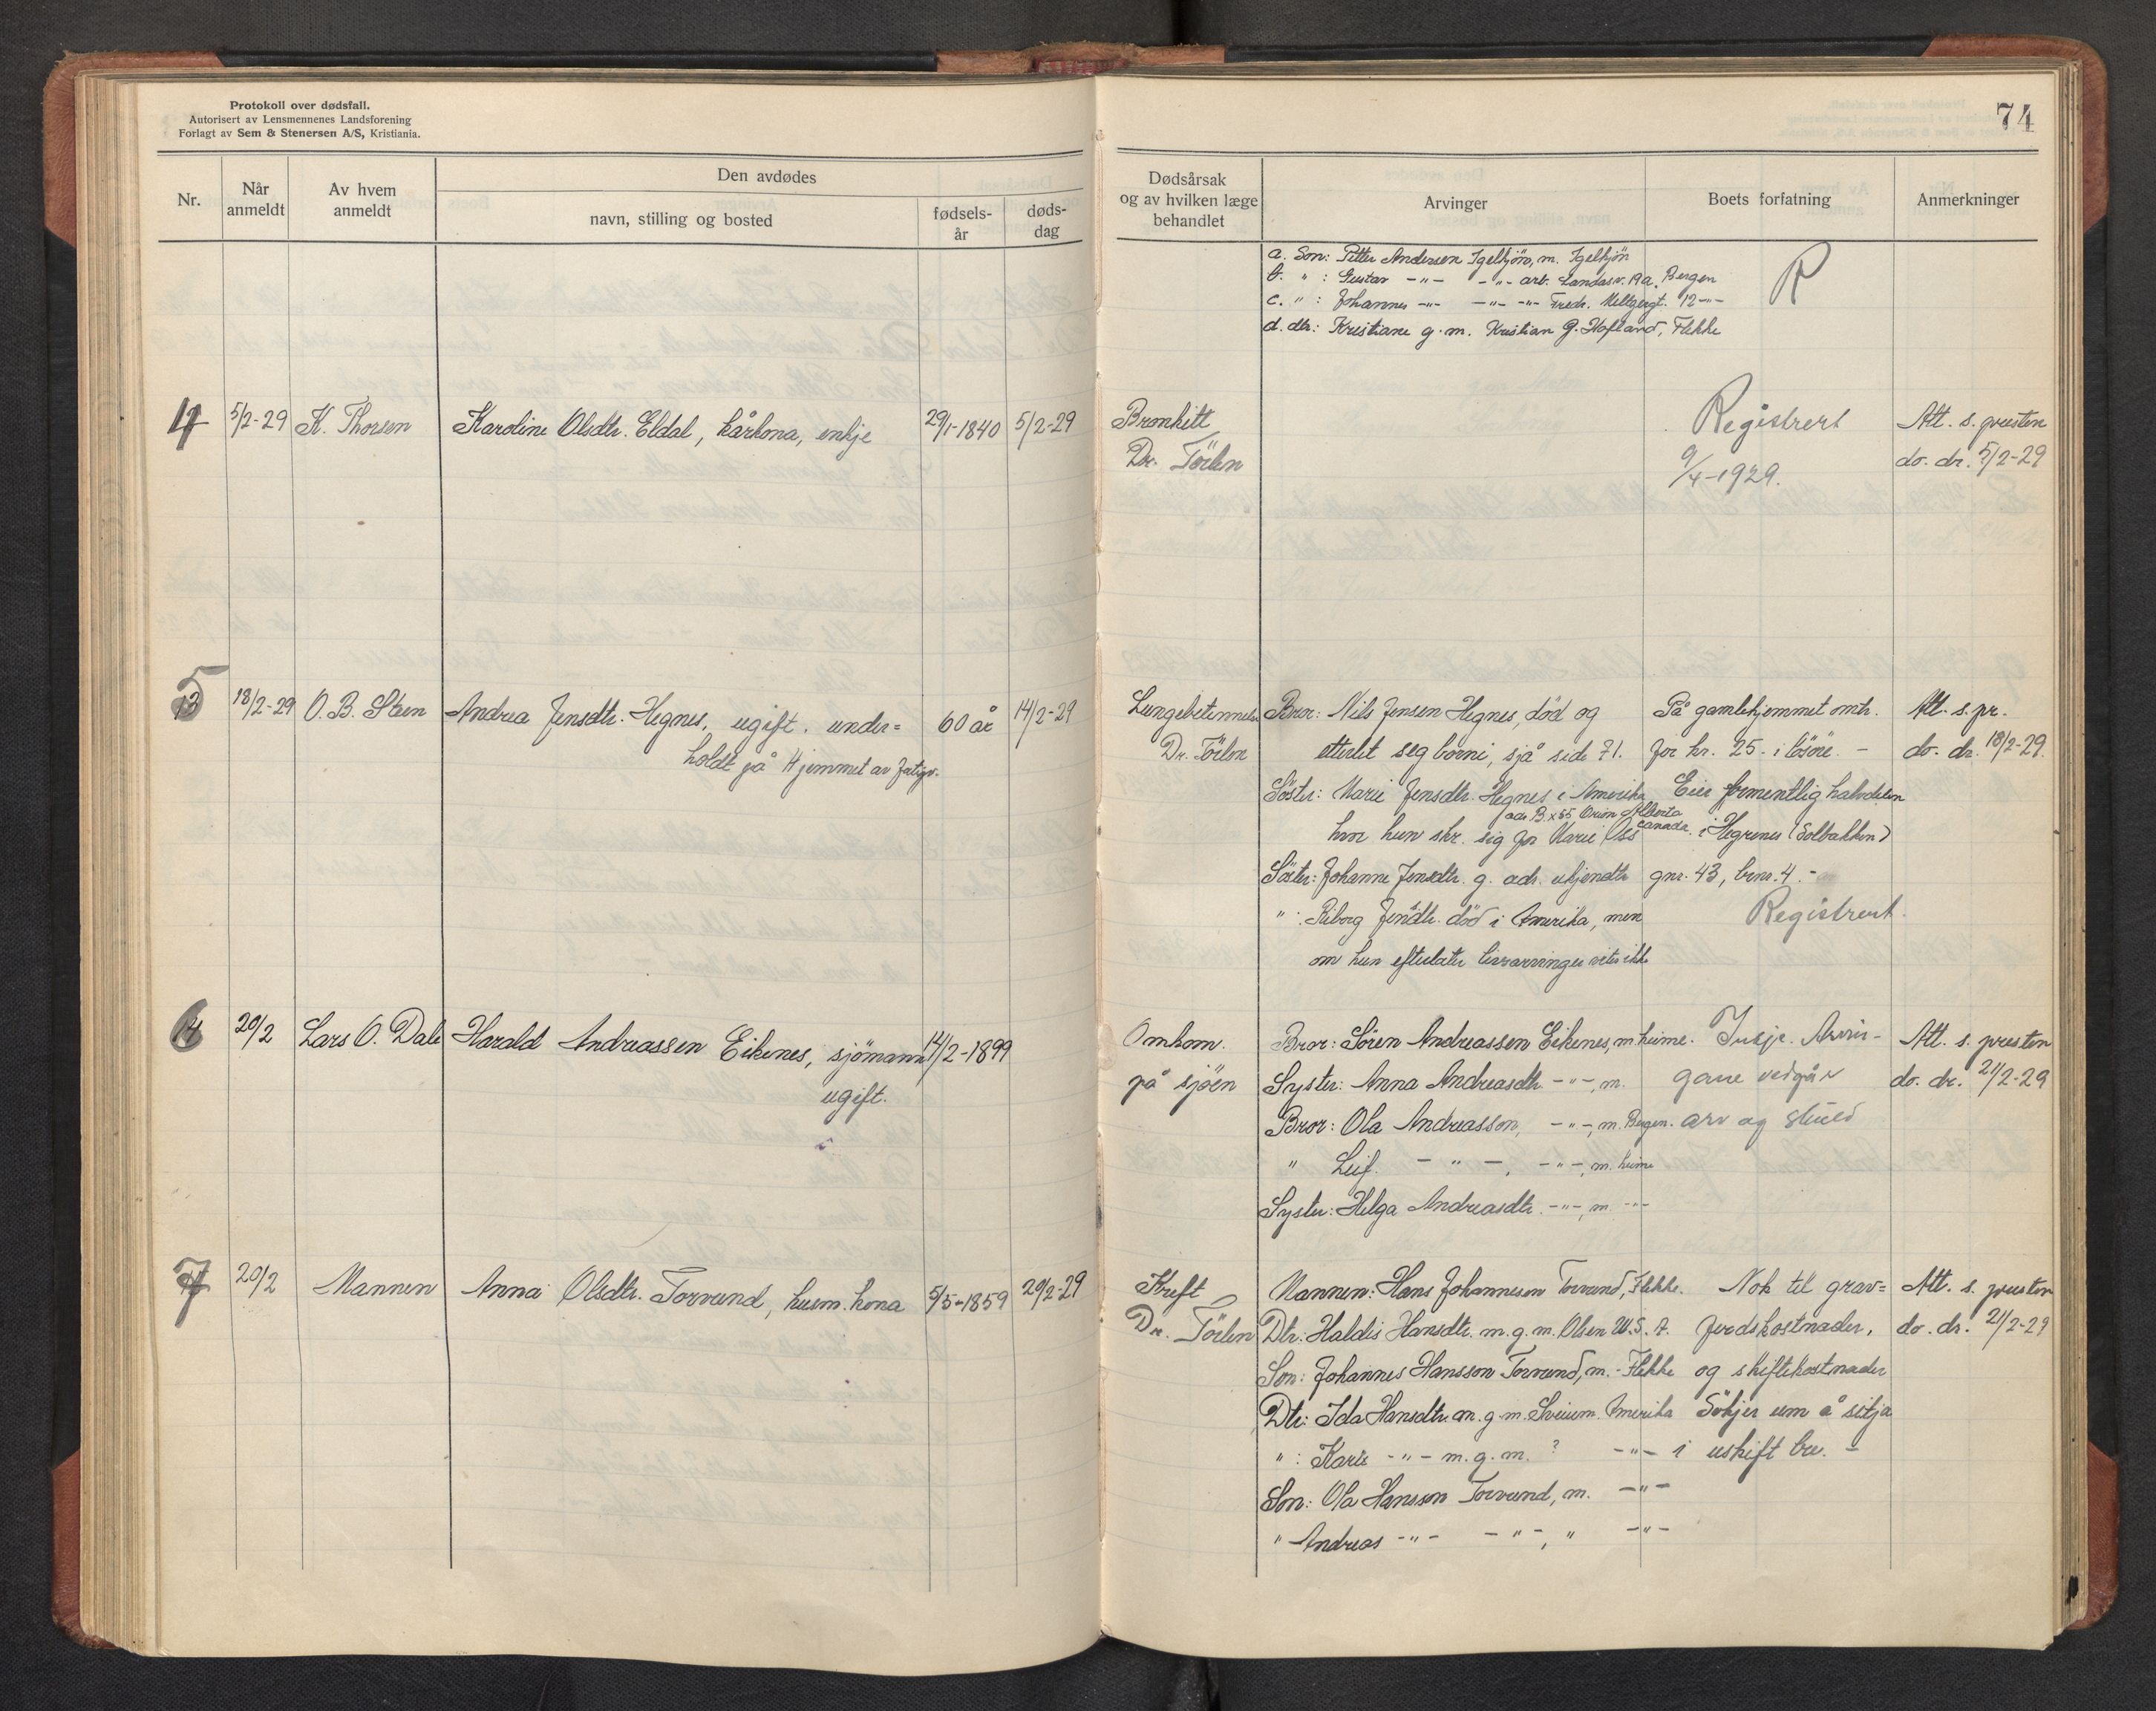 Protokoll over dødsfall.
Autorisert av Lensmennenes Landsforening
Forlagt av Sem & Stenersen A/S, Kristiania.
74
Nr.
Når anmeldt
Av hvem anmeldt
Den avdødes
navn, stilling og bosted
fødsels-år
døds-dag
Dødsårsak og av hvilken læge behandlet
Arvinger
Boets forfatning
Anmerkninger
a. Son: Petter Andersen Igelkjön, m. Igelkjön
b. " : Gustav -"- -"- arb. Landasv. 19a, Bergen
c. " : Johannes -"- -"- -"- Fredr. Meltzersgt. 12 -"-
d. dtr: Kristiane g. m. Kristian G. Hofland, Flekke
R
4
5/2-29
K. Thorsen
Karoline Olsdtr. Eldal, kårkona, enkje
29/1-1840
5/2-29
Bronkitt
Dr. Törlen
Registrert
9/4-1929.
Att. s. presten
do. dr. 5/2-29
5
13
18/2-29
O. B. Steen
Andrea Jensdtr. Hegnes, ugift. under=
holdt på Hjemmet av fatigv.
60 år
14/2-29
Lungebetennelse
Dr. Törlen
Bror: Nils Jensen Hegnes, död og
etterlet seg borni, sjå side 71.
Söster: Marie Jensdtr. Hegnes i Amerika
adr. B x 55 Orion Alberta
Canada.
hvor hun skr. sig for Marie Ols
Söster: Johanne Jensdtr. g. adr. ukjendte
" : Riborg Jensdtr. död i Amerika, men
om hun efterlater livsarvinger vites ikke
På gamlehjemmet omtr.
for kr. 25.- i lösöre. -
Eier formentlig halvdelen
i Hegrenes (Solbakken)
gnr. 43, brnr. 4. -
Registrert.
Att. s. pr.
do. dr. 18/2-29.
6
14
20/2
Lars O. Dale
Harald Andreassen Eikenes, sjömann
ugift.
14/2-1899
Omkom.
på sjöen
Bror: Sören Andreassen Eikenes, m heime.
Syster: Anna Andreasdtr. -"-, m.
Bror: Ola Andreasson, -"-, m. Bergen.
" Leif. - " -, -"-, m. heime
Syster: Helga Andreasdtr. -"-, m. -"-
Intje. Arvin-
gane vedgår
arv og skuld
Att. s. presten
do. dr. 21/2-29
7
20/2
Mannen
Anna Olsdtr. Torvund, husm. kona
5/5-1859
20/2-29
Kreft
Dr. Törlen
Mannen: Hans Johanneson Torvund, Flekke.
Dtr: Haldis Hansdtr. m. g. m. Olsen U.S.A.
Son: Johannes Hansson Torvund, m. - Flekke
Dtr: Ida Hansdtr. m. g. m. Sveium. Amerika
" : Kari -"- m. g. m. ? -"-
Son: Ola Hansson Torvund, m. -"-
" Andreas -"- -"-, " -"-
Nok til grav=
ferdskostnader,
og skiftekostnader
Sökjer um å sitja
i uskift bu. -
Att. s. presten
do. dr. 21/2-29